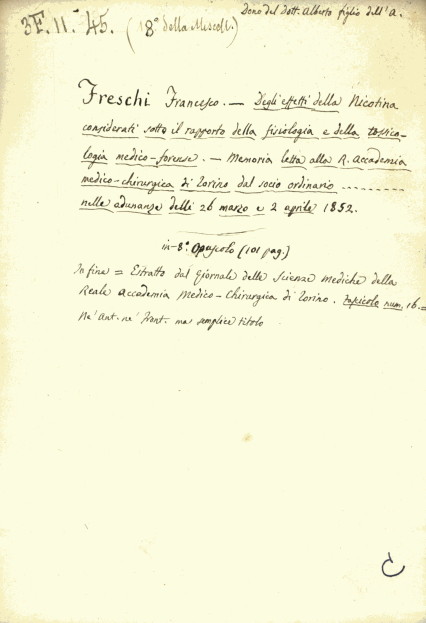 Dono del dott. Alberto figlio dell'A.
3F. II. 45. (18° della Miscell.)
Freschi Francesco. — Degli effetti della Nicotina
considerati sotto il rapporto della fisiologia e della tossico-
logia medico-forense. — Memoria letta alla R. Accademia
medico-chirurgica di Torino dal socio ordinario ..........
nelle adunanze delli 26 marzo e 2 aprile 1852.
in-8° Opuscolo (101 pag.)
In fine = Estratto dal Giornale delle Scienze mediche della
Reale Accademia Medico-Chirurgica di Torino. Fascicolo num. 16. =
Nè Ant. nè Front. ma semplice titolo